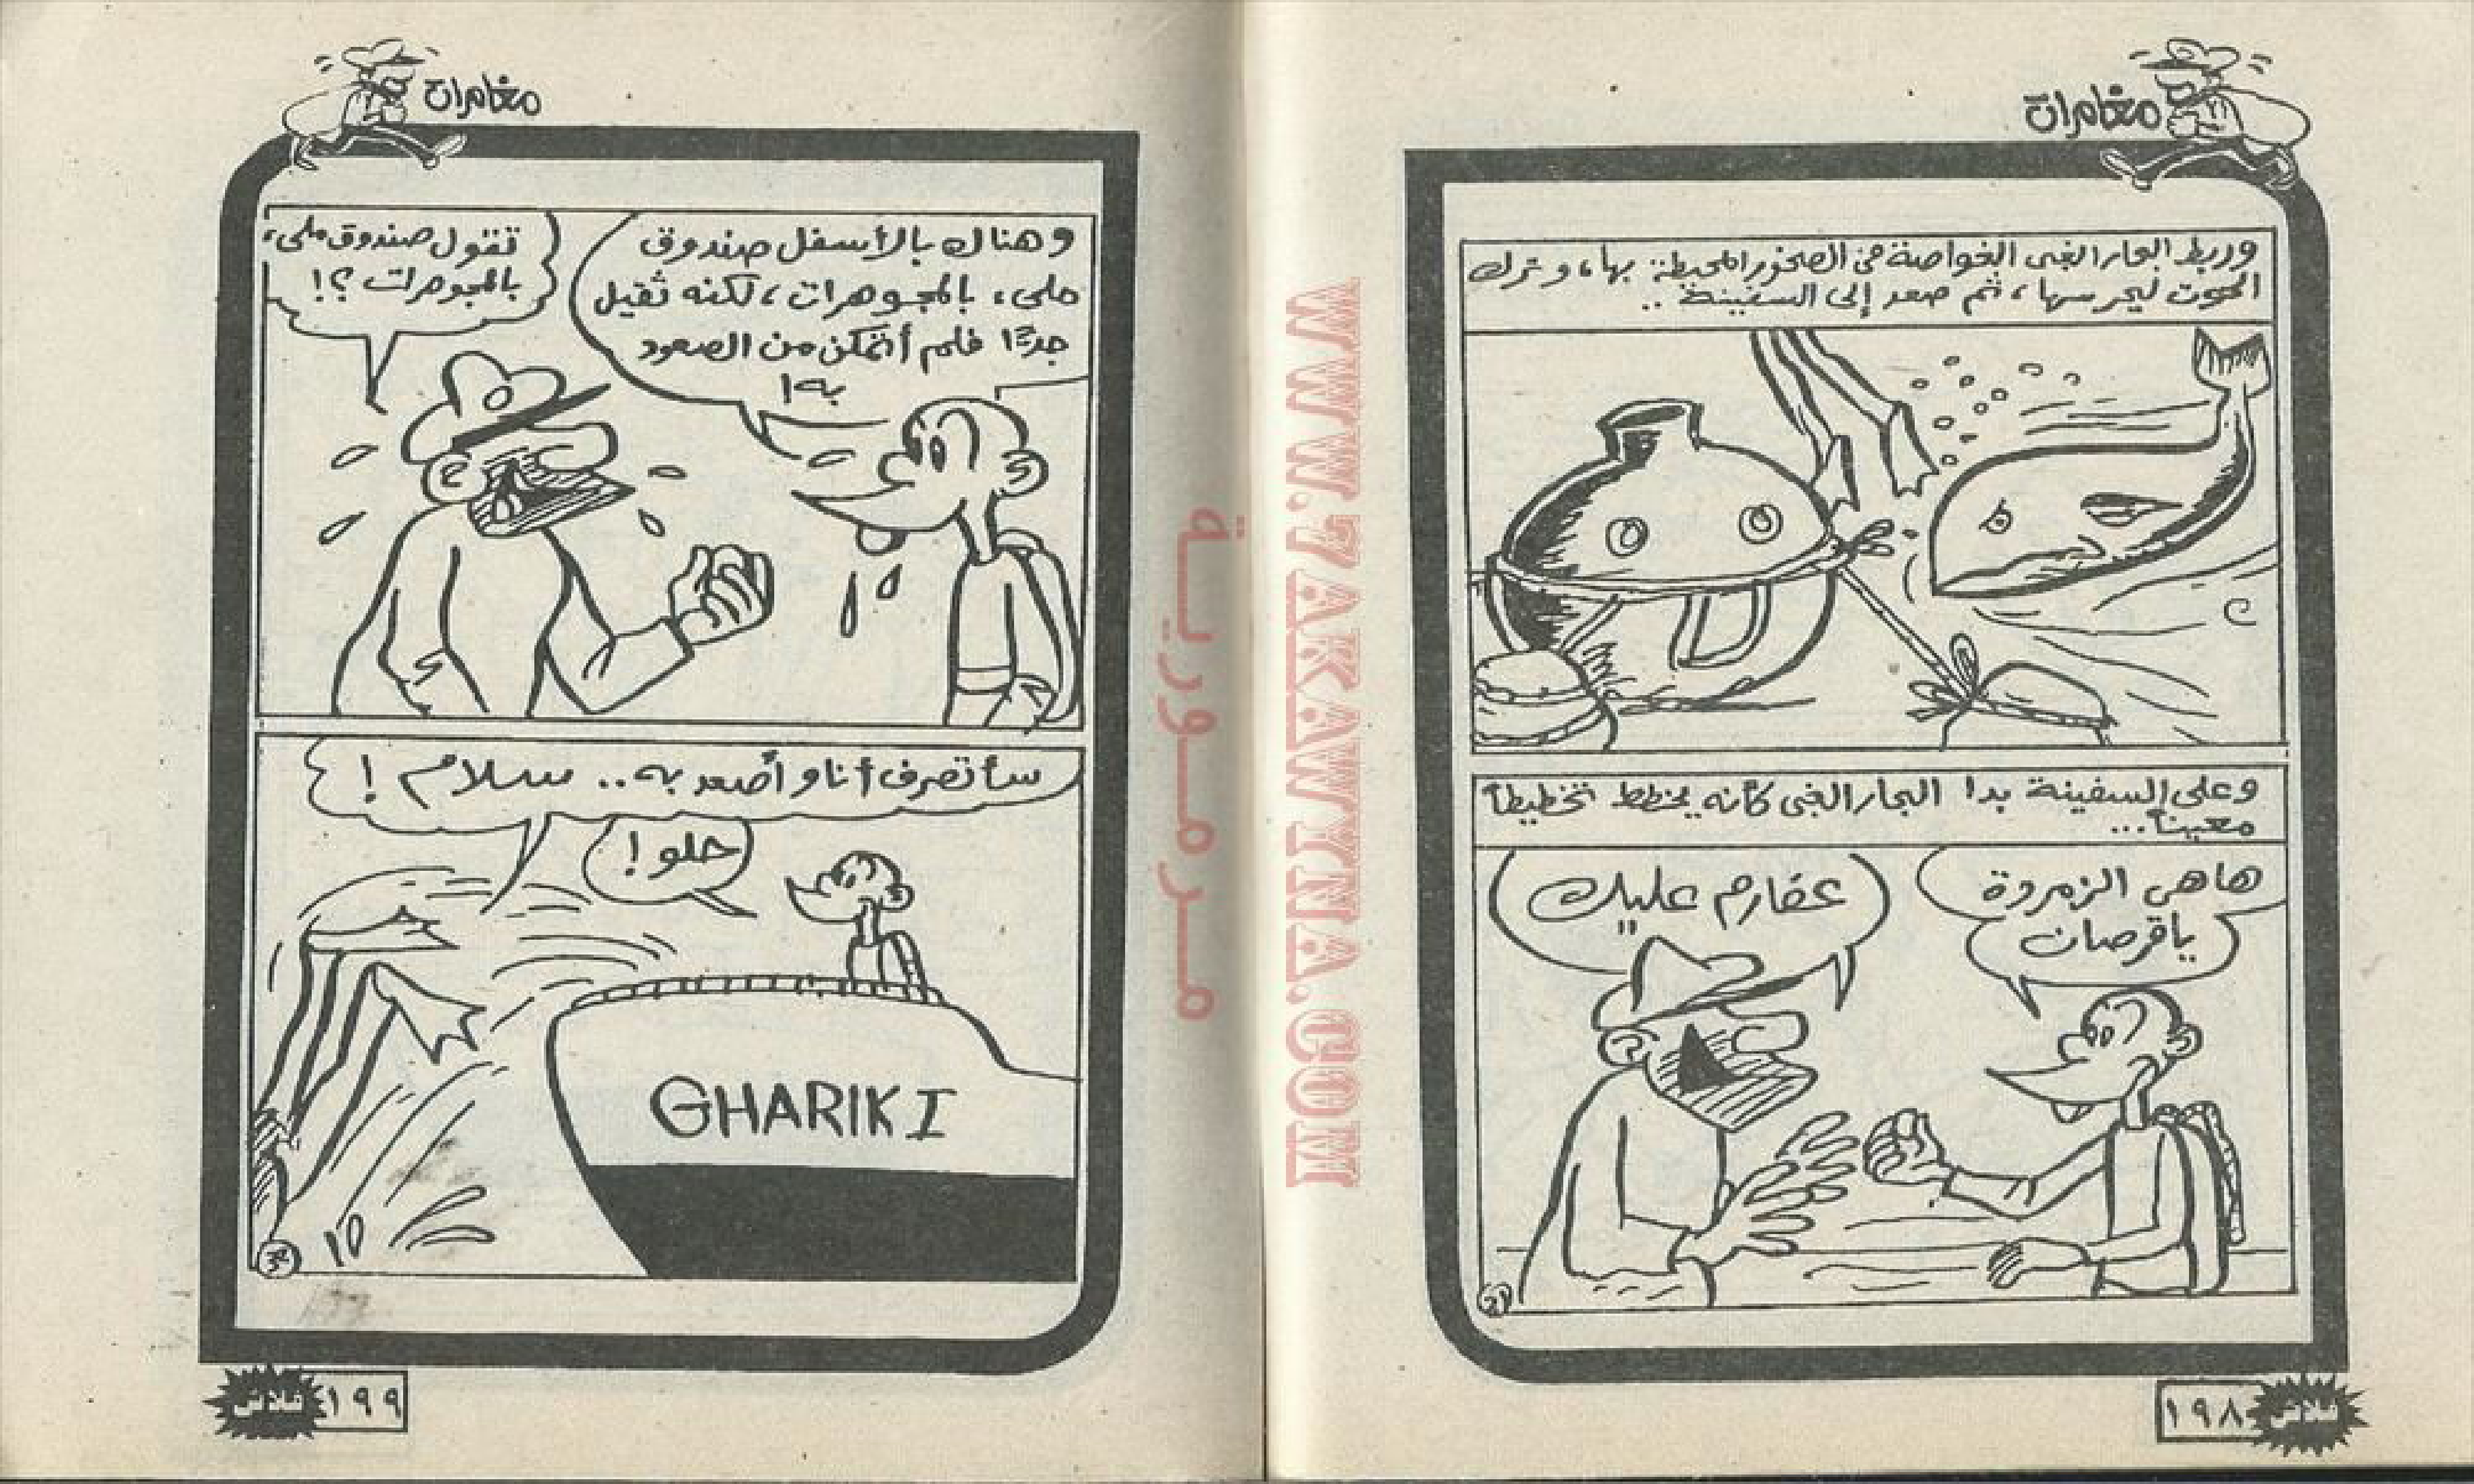 مغامرات
وربط البحار الغبى الغواصة فى الصخور المحيطة بها، وترك
الحوت ليحرسها، ثم صعد إلى السفينة ..
وعلى السفينة بدا البحار الغبى كأنه يخطط تخطيطاً
معيناً...
هاهى الزمردة
ياقرصان
عفارم عليك
٢١
١٩٨
فلاش
مغامرات
وهناك بالأسفل صندوق
ملىء بالمجوهرات، لكنه ثقيل
جدًا فلم أتمكن من الصعود
به!
تقول صندوق ملىء
بالمجوهرات ؟!
سأتصرف أنا وأصعد به.. سلام !
حلو !
GHARIK I
١٩٩
فلاش
مرمورية
WWW.7AKAWYNA.COM